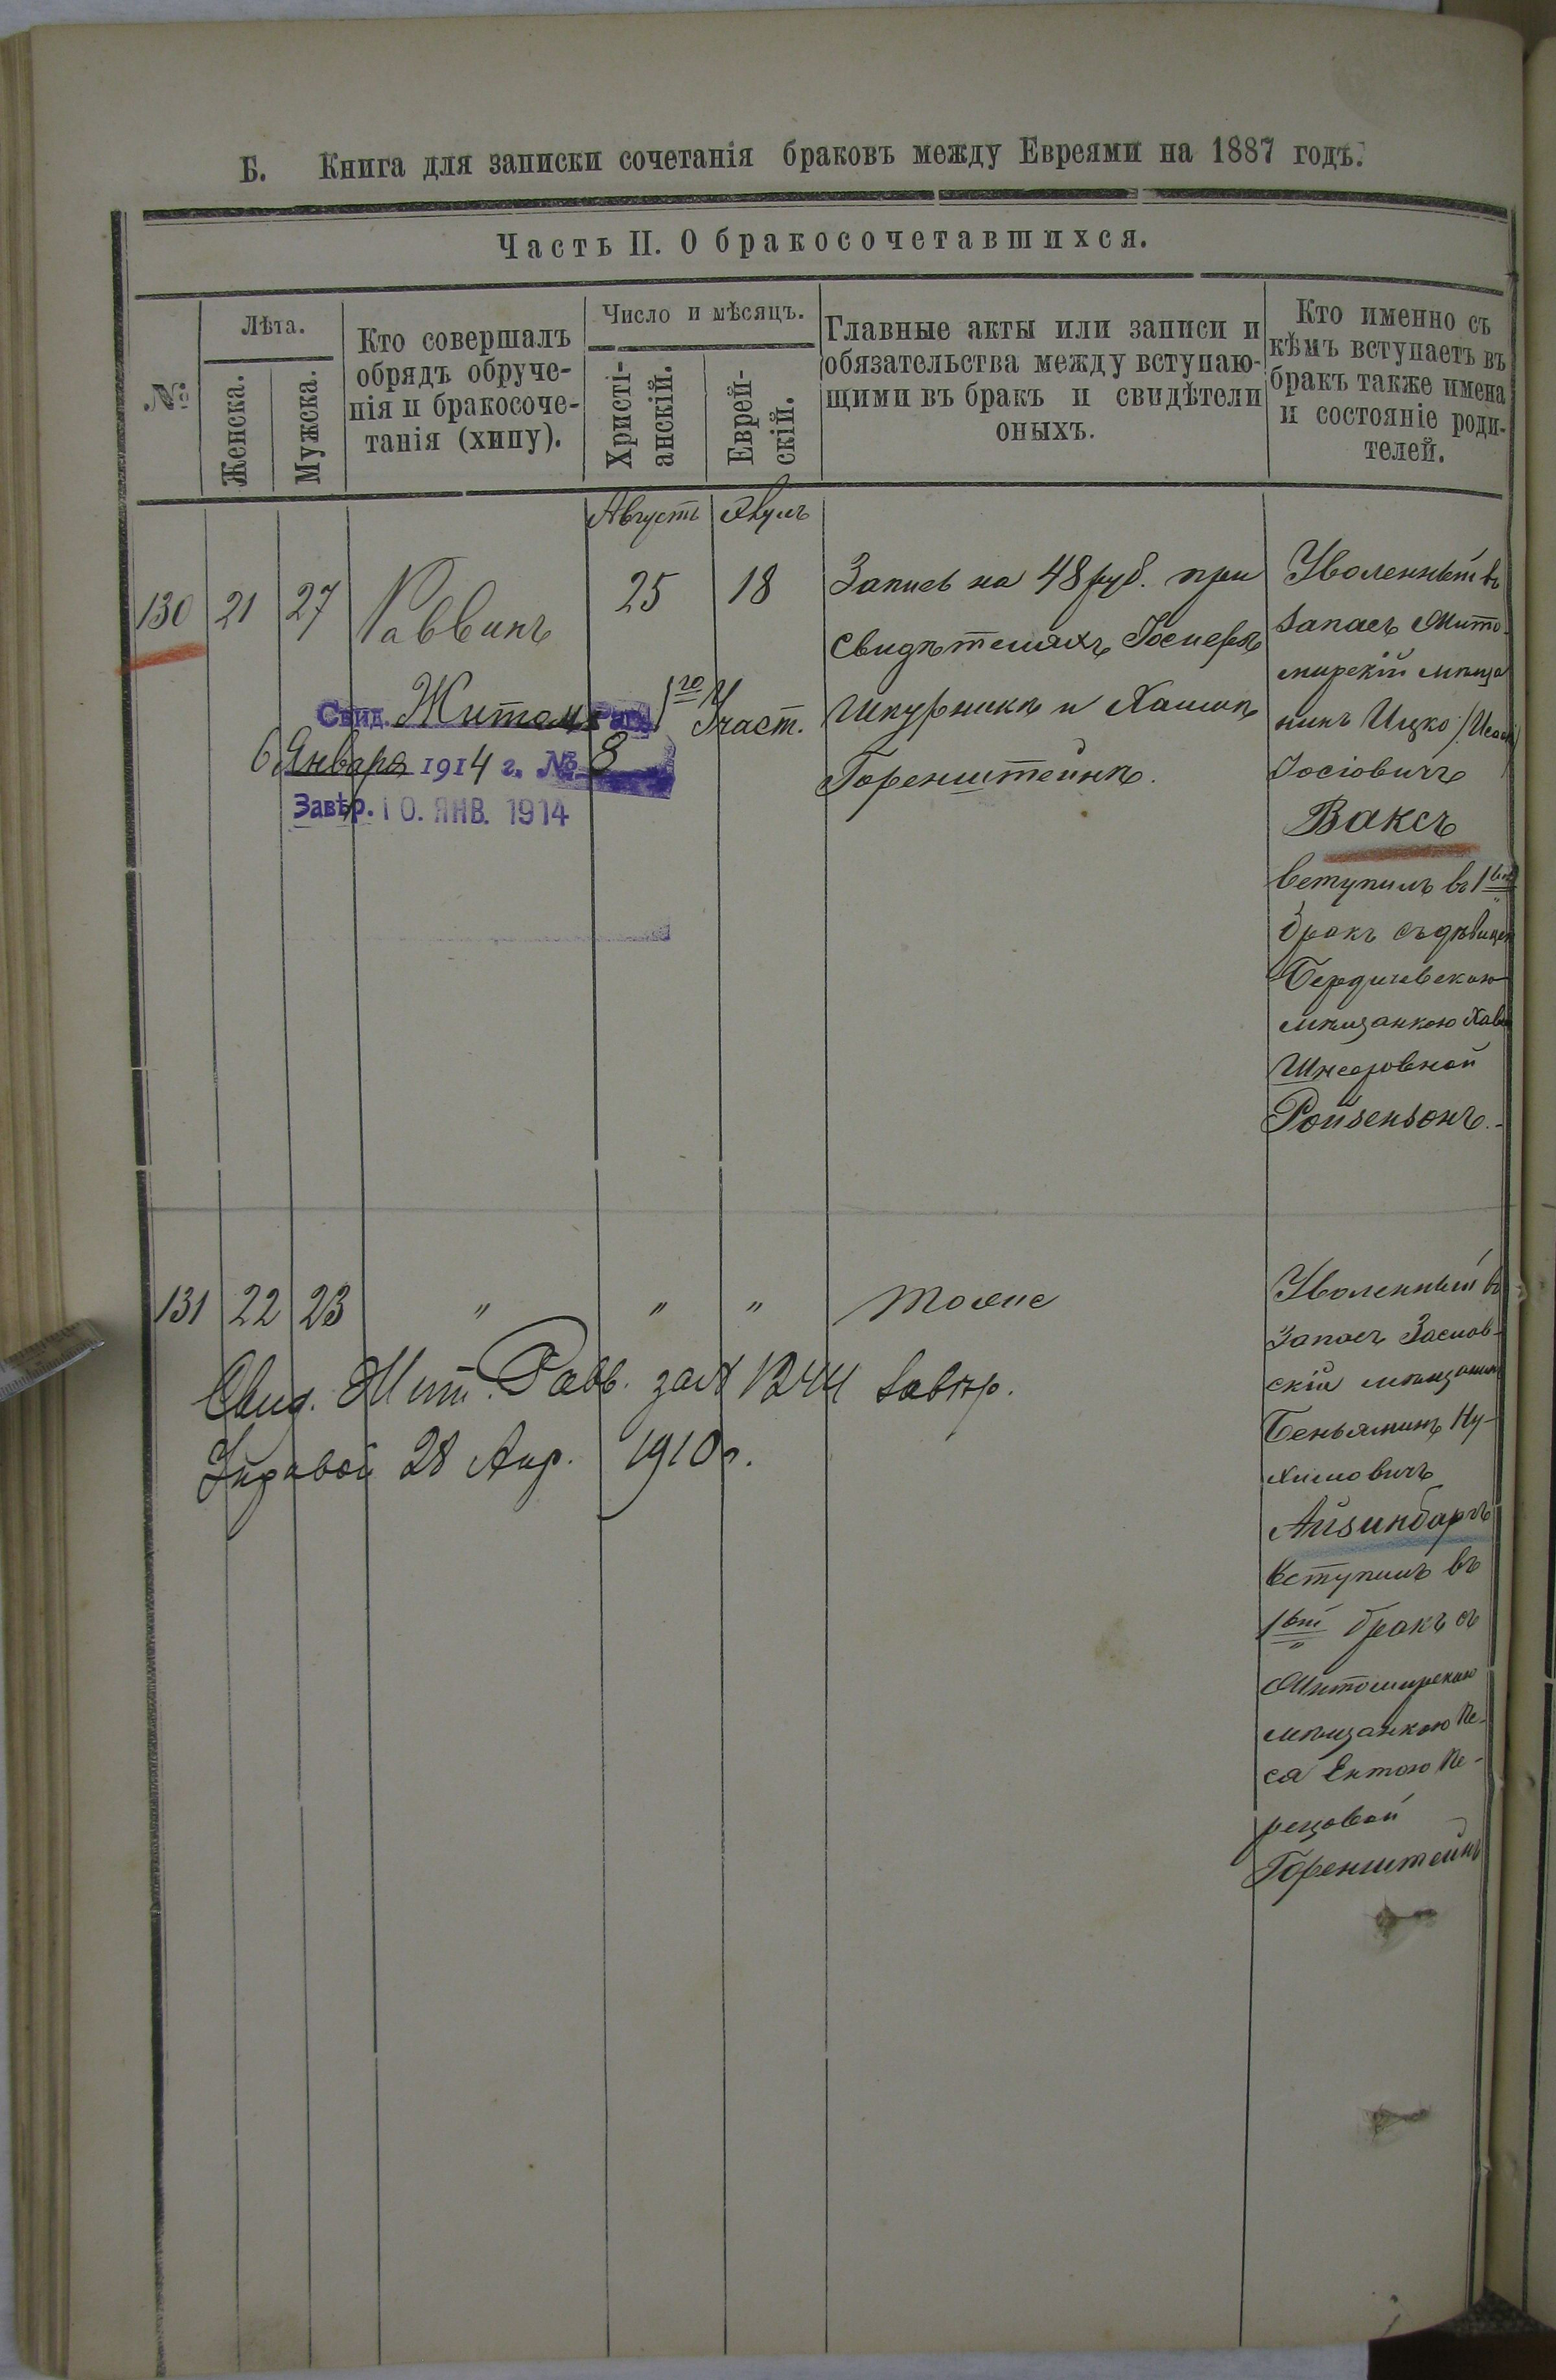 Б. Книга для записки сочетанія браковъ между Евреями на 1887 годъ.
Часть II. О бракосочетавшихся.
№
Лѣта.
Женска.
Мужска.
Кто совершалъ
обрядъ обруче-
нія и бракосоче-
танія (хипу).
Число и мѣсяцъ.
Христі-
анскій.
Еврей-
скій.
Главные акты или записи и
обязательства между вступаю-
щими въ бракъ и свидѣтели
оныхъ.
Кто именно съ
кѣмъ вступаетъ въ
бракъ также имена
и состояніе роди-
телей.
Августъ
130
21
27
Раввинъ
25
18
Запись на 48 руб. при
свидѣтеляхъ Іосифѣ
Шкурникѣ и Хаимѣ
Горенштейнѣ.
Уволенный въ
запасъ Жито-
мирскій мѣща
нинъ Ицко
Іосіовичъ
Ваксъ
вступилъ въ 1ый
бракъ съ дѣвицею
Бердичевскою
мѣщанкою Хава
Шнеоровной
Ройзензонъ.
Свид. Житом. 1го Участ.
6 Января 1914 г. № 8
Завѣр. 10. ЯНВ. 1914
131
22
23
"
"
"
тоже
Уволенный въ
Запасъ Заслав-
скій мѣщанинъ
Беньяминъ Ну-
химовичъ
Айзинбаргъ
вступилъ въ
1ый бракъ съ
Житомирскою
мѣщанкою Пе-
ся Ентою Пе-
рецовой
Горенштейнъ
Свид. Жит. Равв. за № 1244 завѣр.
Управой 28 Апр. 1910 г.